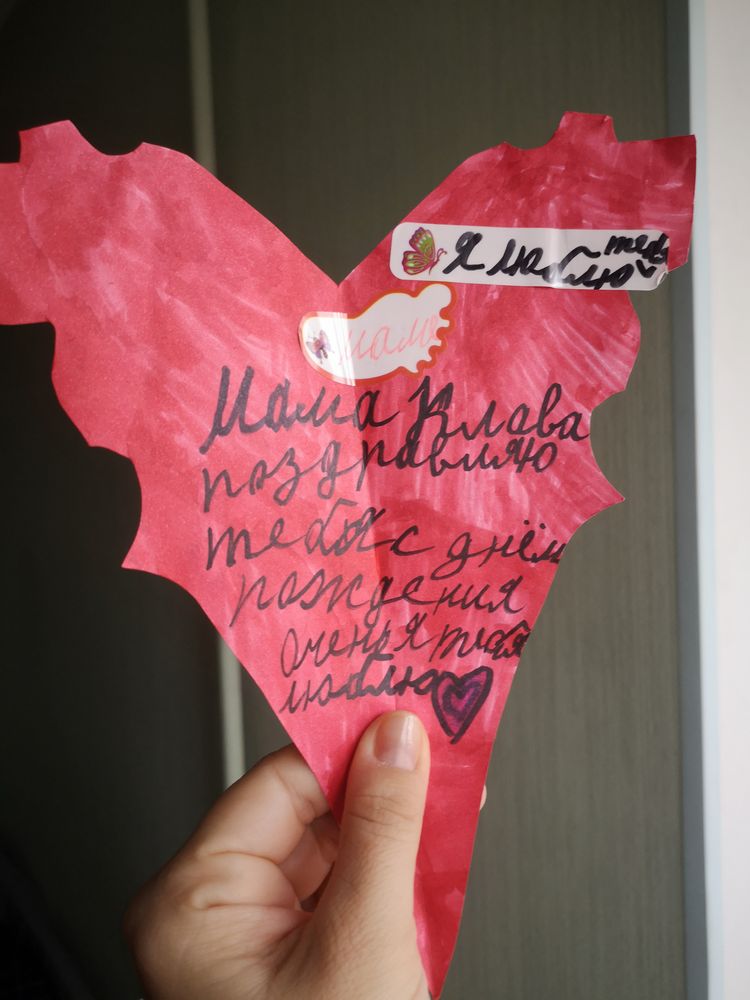 Я люблю тебя
мама
Мама Клава
поздравляю
тебя с днём
рождения
очень я тебя
люблю